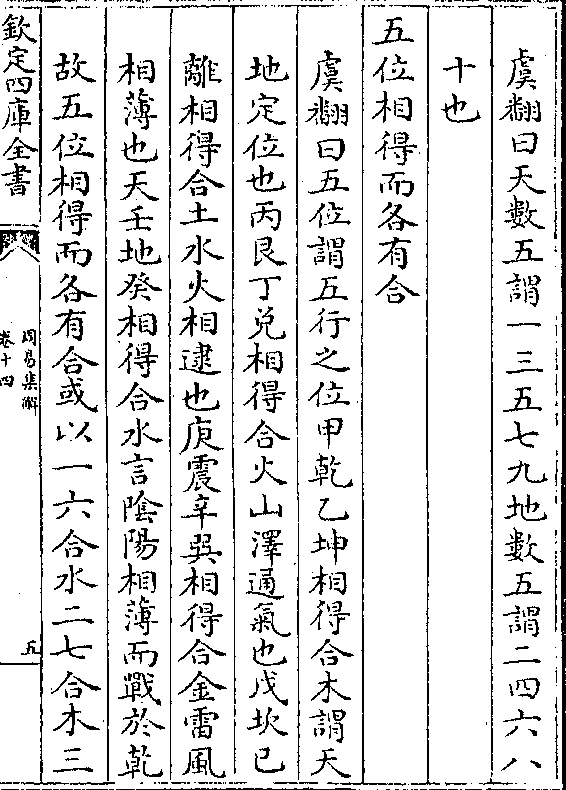 虞翻曰天數五謂一三五七九地數五謂二四六八
十也
五位相得而各有合
虞翻曰五位謂五行之位甲乾乙坤相得合木謂天
地定位也丙艮丁兌相得合火山澤通氣也戊坎已
離相得合土水火相逮也庚震辛巽相得合金雷風
相薄也天壬地癸相得合水言陰陽相薄而戰於乾
故五位相得而各有合或以一六合水二七合木三
欽定四庫全書
周易集解
卷十四
五